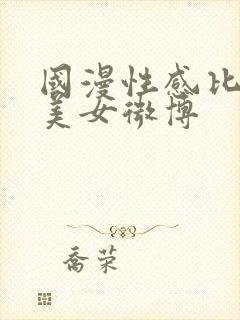 國漫性感比
美女微博
喬荣